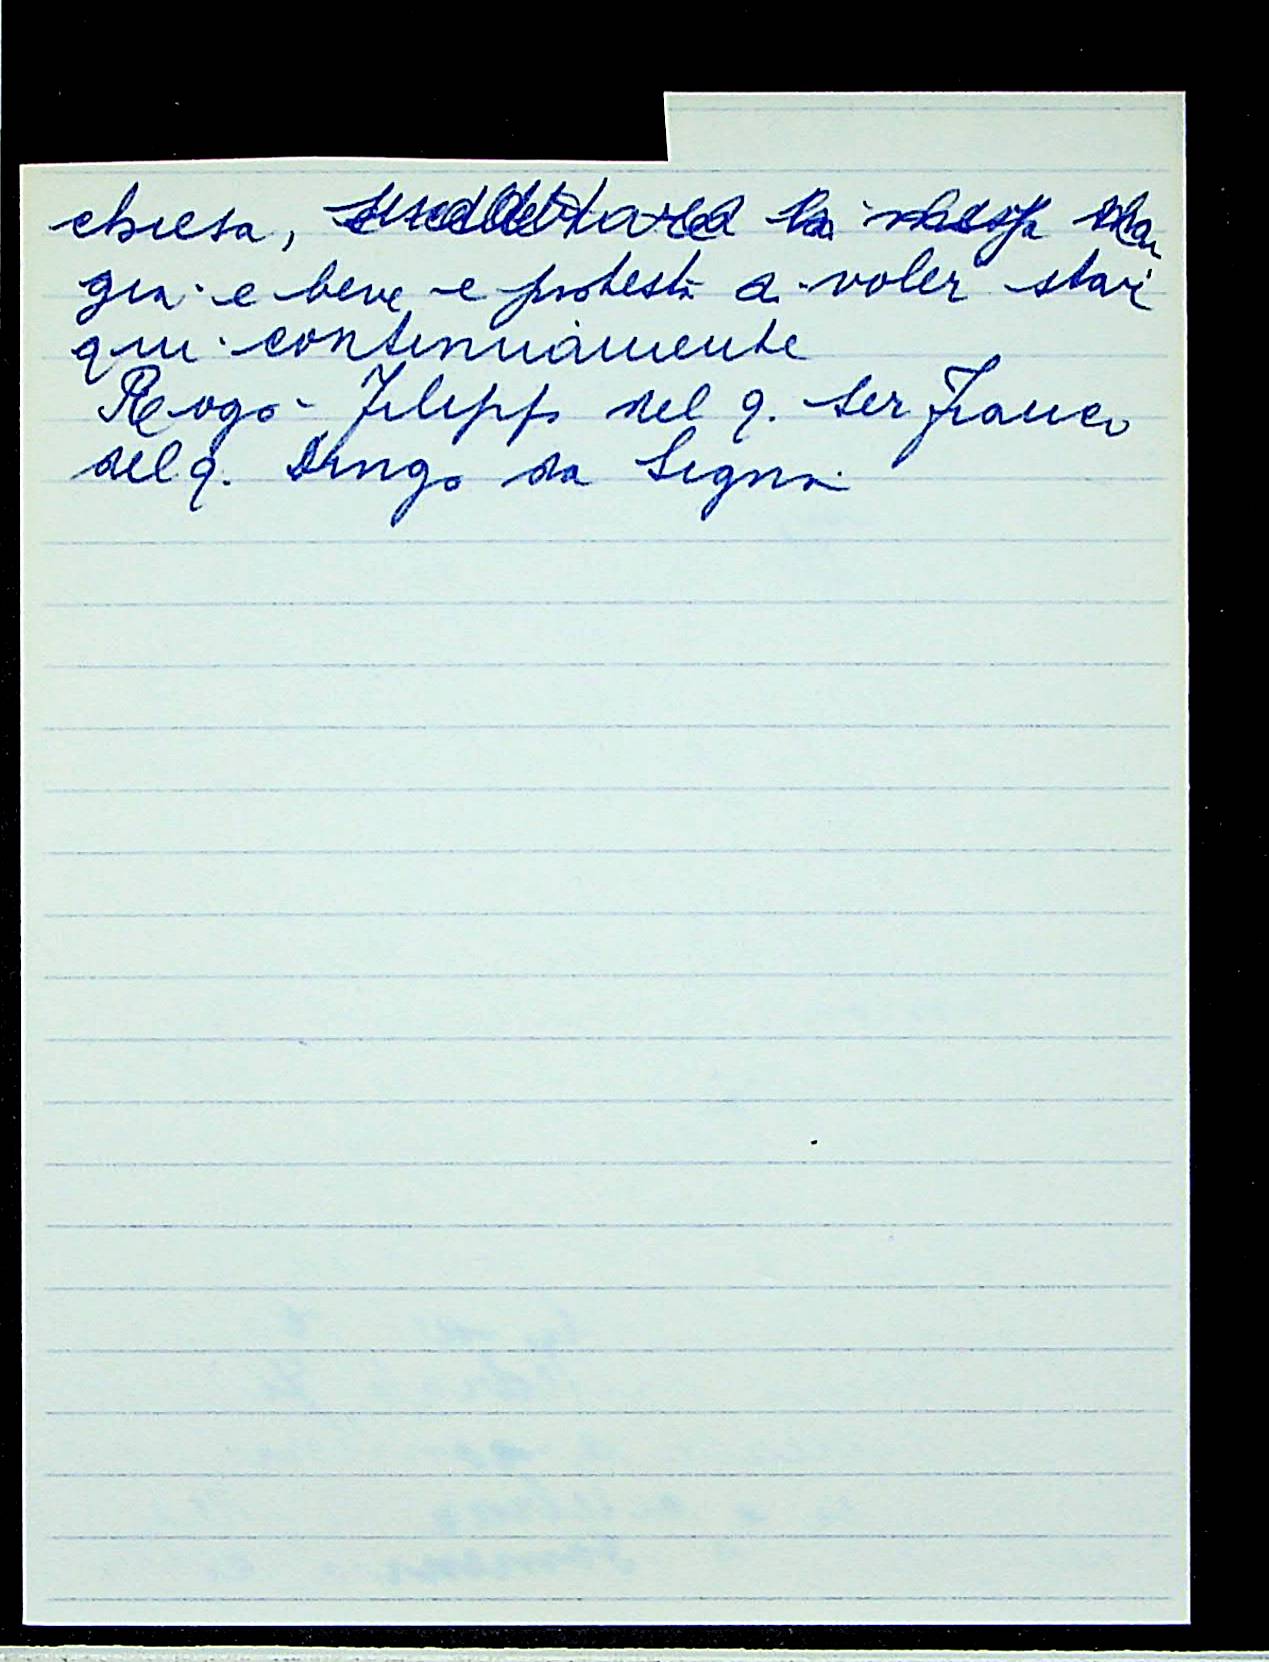 chiesa, la messa man
gia e beve e protesta a voler stare
qui continuamente
Rogo Filippo del q. ser Franco
del q. Dingo da Signa